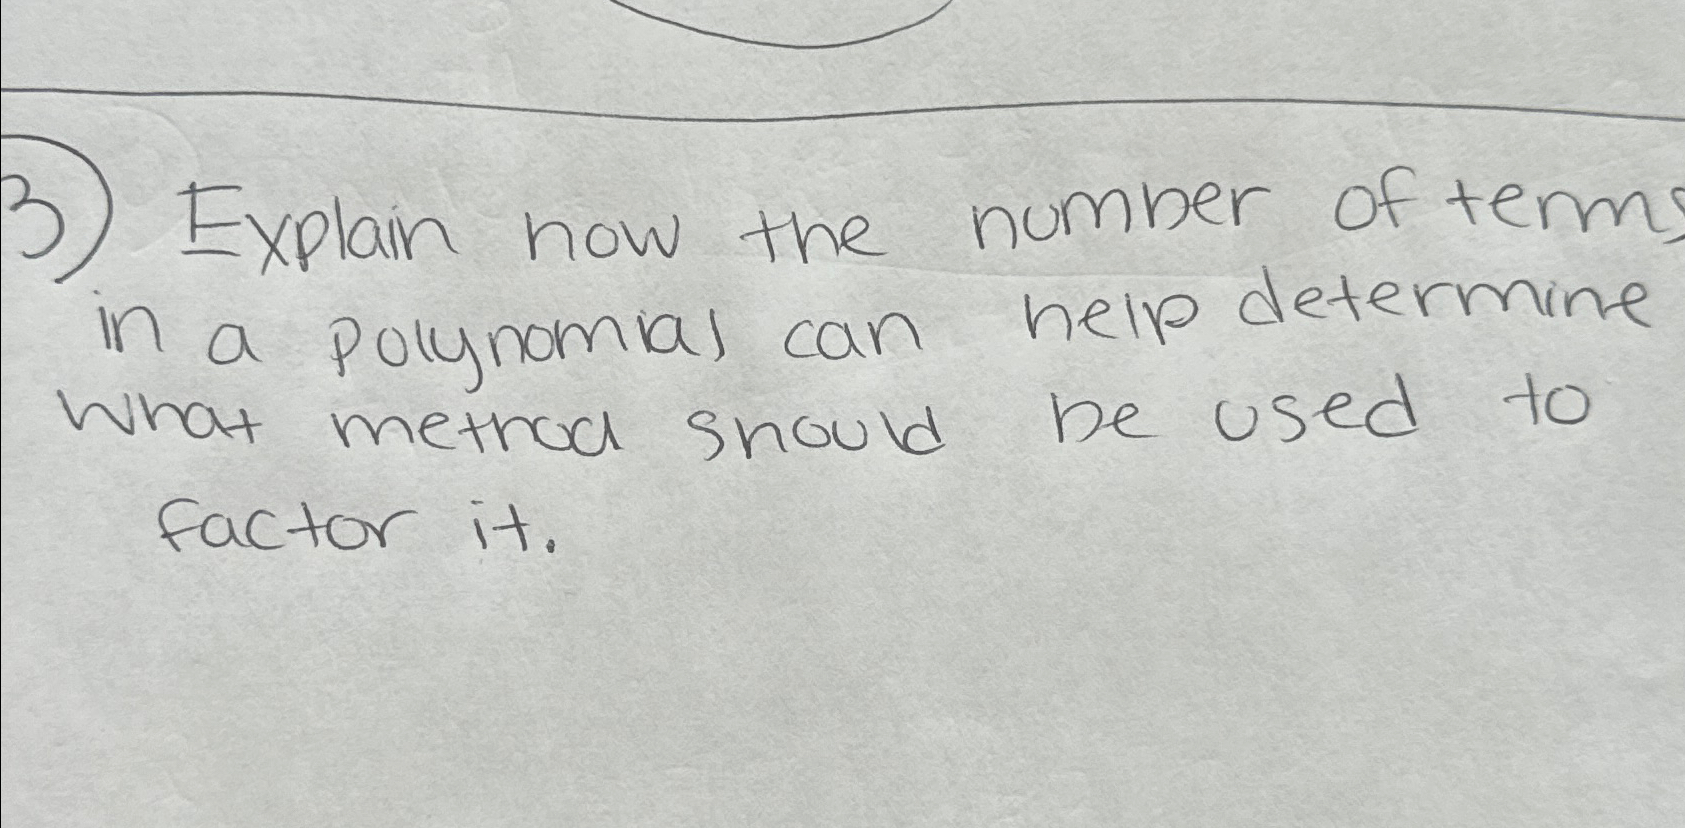 3) Explain how the number of terms
in a polynomial can help determine
what method should be used to
factor it.